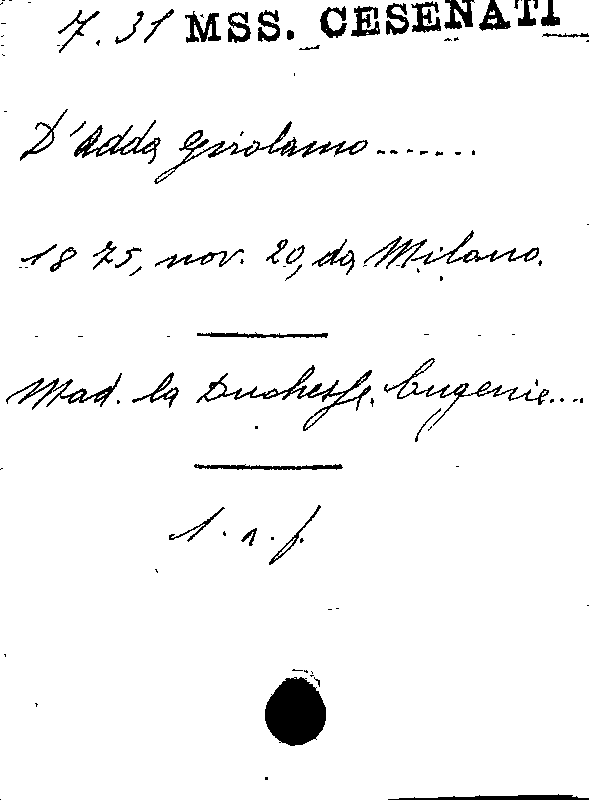 7.31 MSS. CESENATI
D'Adda Girolamo.......
1875, nov. 20, da Milano.
Mad. la Duchesse Eugenie...
l. a. f.